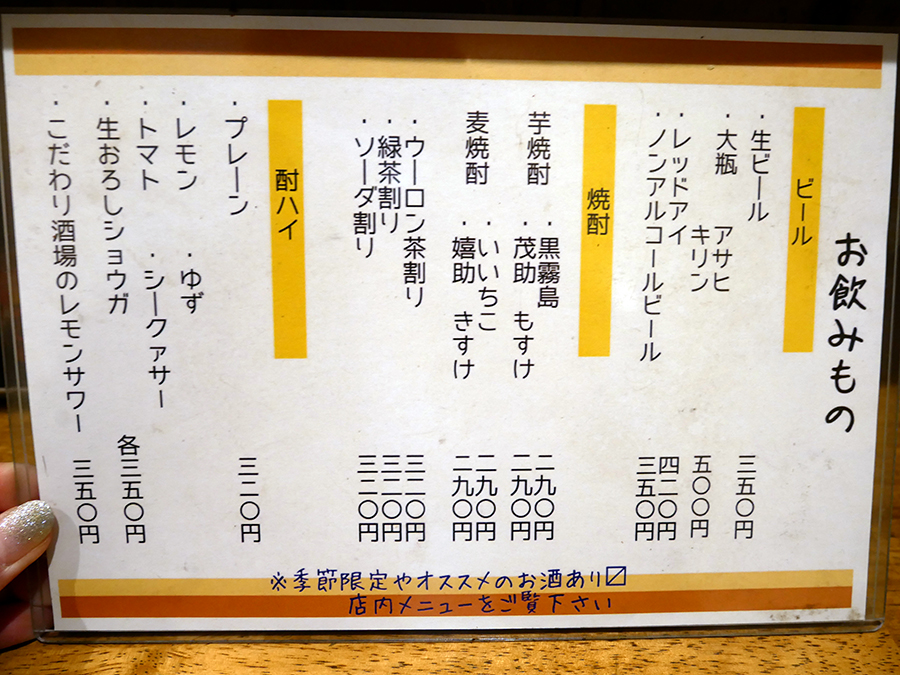 お飲みもの
ビール
・生ビール 三五〇円
・大瓶 アサヒ
キリン 五〇〇円
・レッドアイ 四二〇円
・ノンアルコールビール 三五〇円
焼酎
芋焼酎 ・黒霧島 二九〇円
・茂助 もすけ 二九〇円
麦焼酎 ・いいちこ 二九〇円
・嬉助 きすけ 二九〇円
・ウーロン茶割り 三二〇円
・緑茶割り 三二〇円
・ソーダ割り 三二〇円
酎ハイ
・プレーン 三二〇円
・レモン ・ゆず
・トマト ・シークァサー
・生おろしショウガ 各三五〇円
・こだわり酒場のレモンサワー 三五〇円
※季節限定やオススメのお酒あり〼
店内メニューをご覧下さい